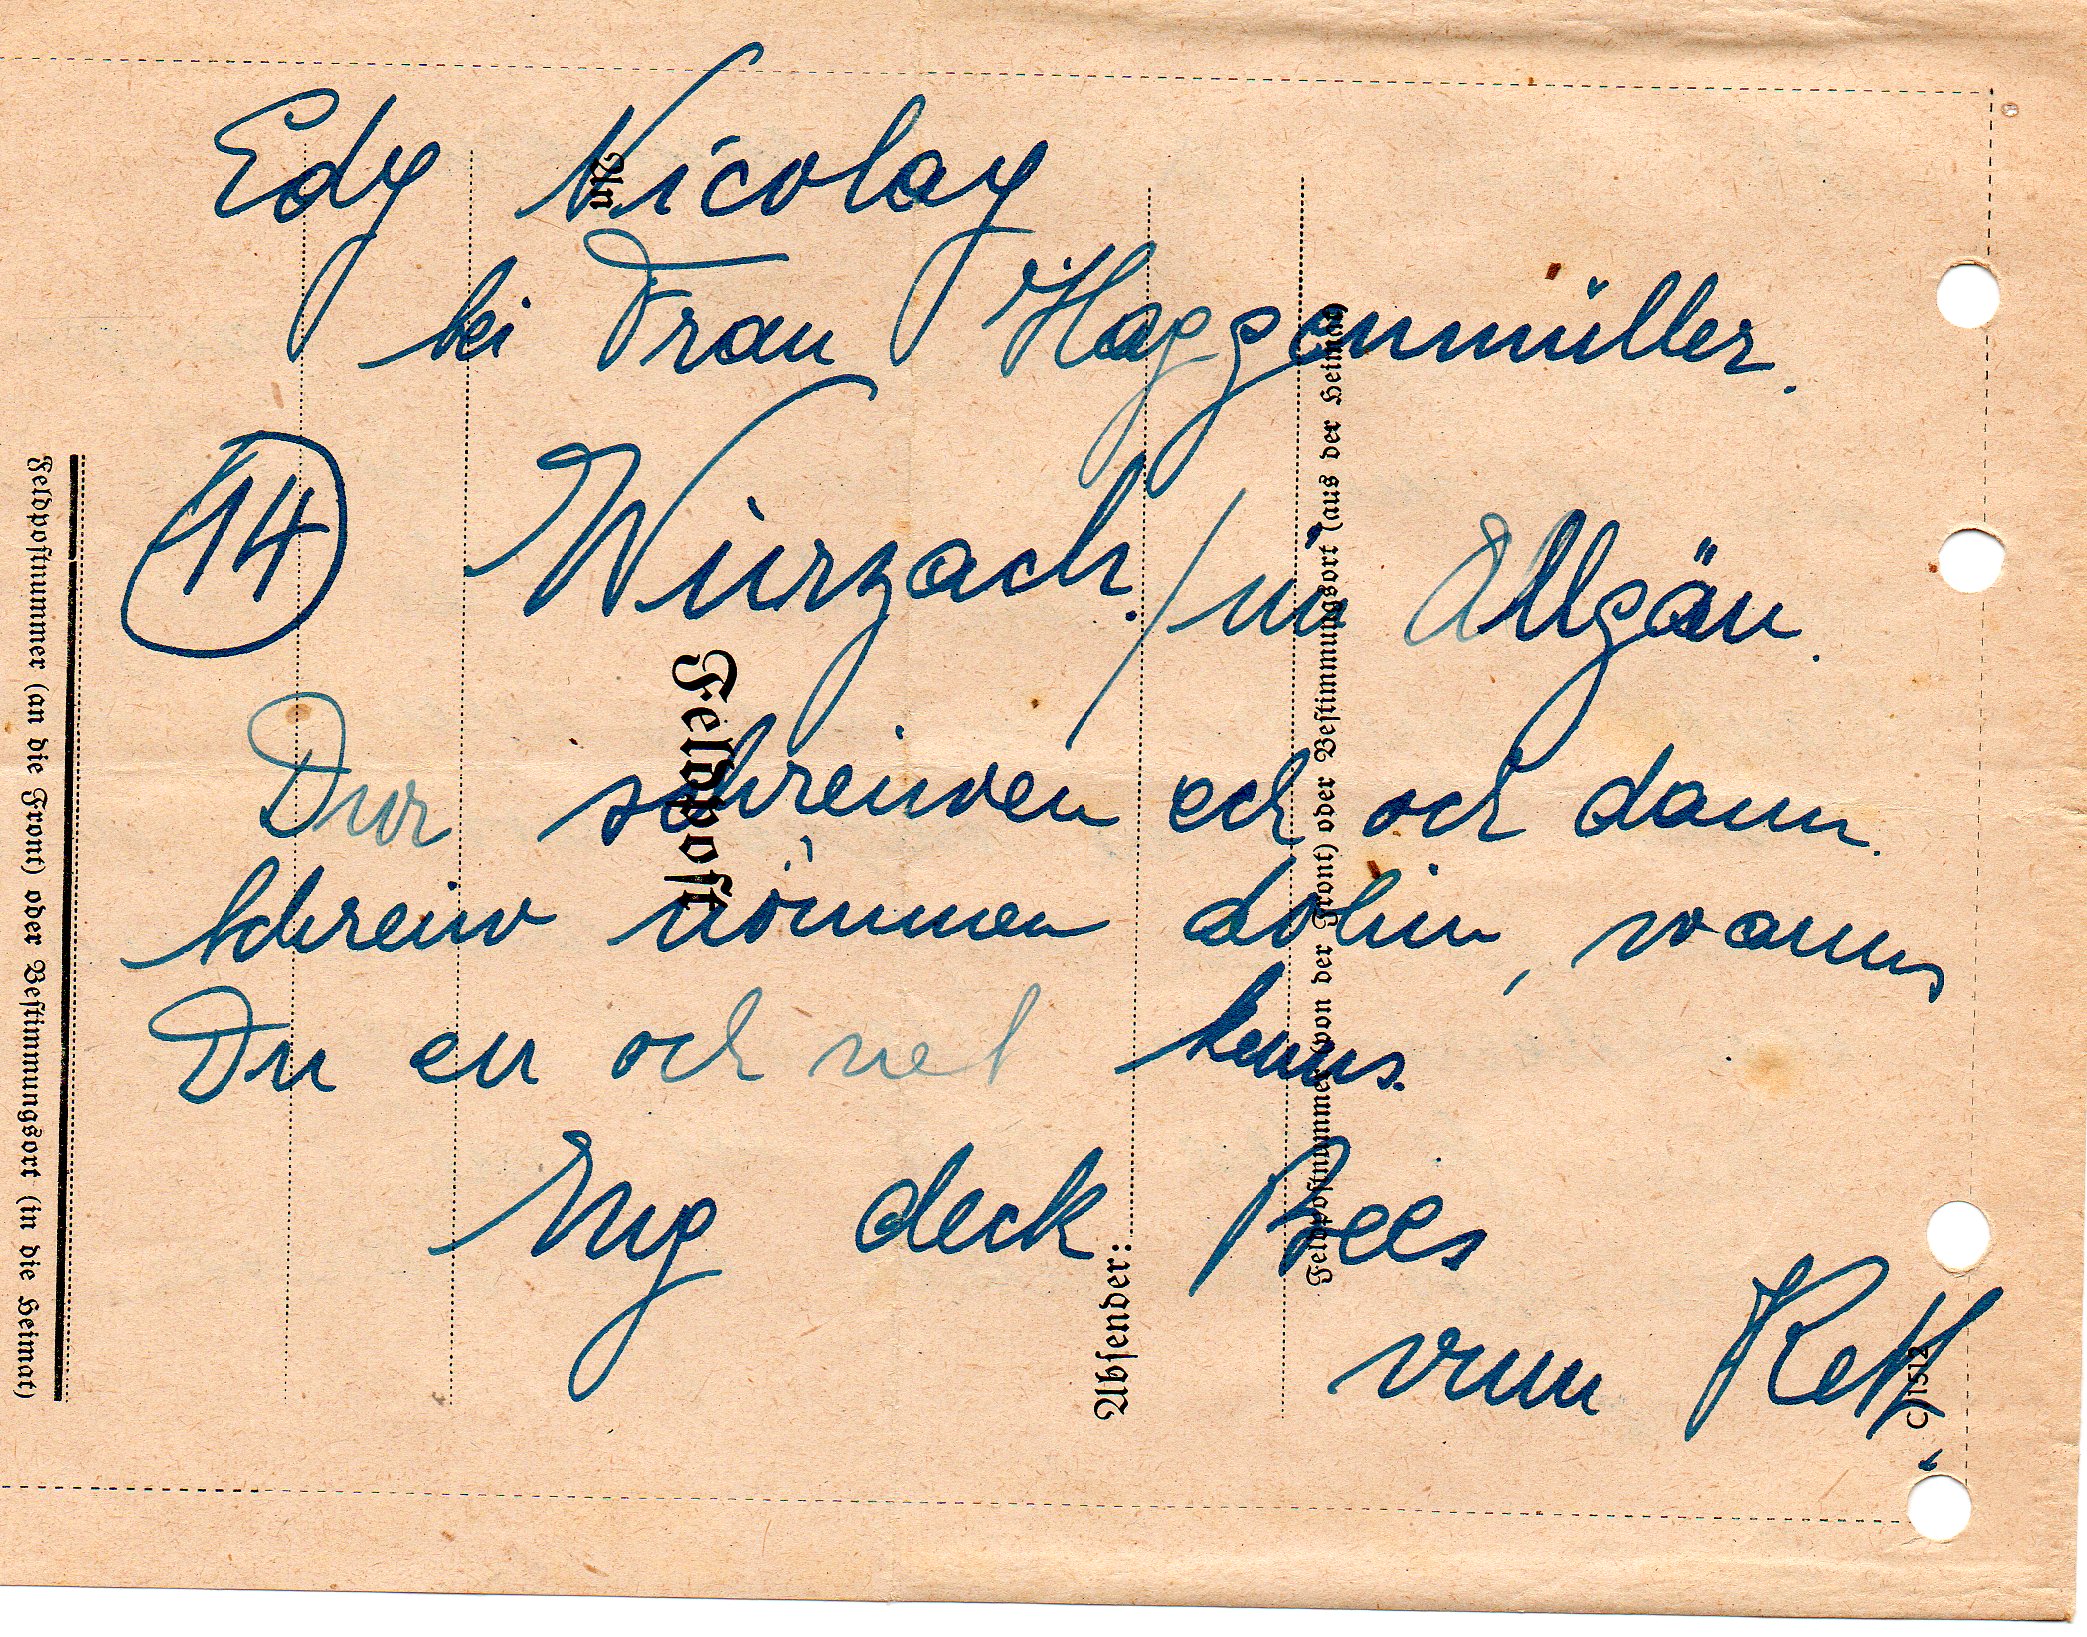 Edy Nicolay
bei Frau Haggenmüller.
14 Wurzach. / im Allgäu.
Dur schreiwen ech och dann.
Schreiw nömmen dohin, wanns
Du en och net kenns.
Eng deck Bees
vum Ketty
An
Feldpost
Absender:
Feldpostnummer (von der Front) oder Bestimmungsort (aus der Heimat)
Feldpostnummer (an die Front) oder Bestimmungsort (in die Heimat)
C/1512